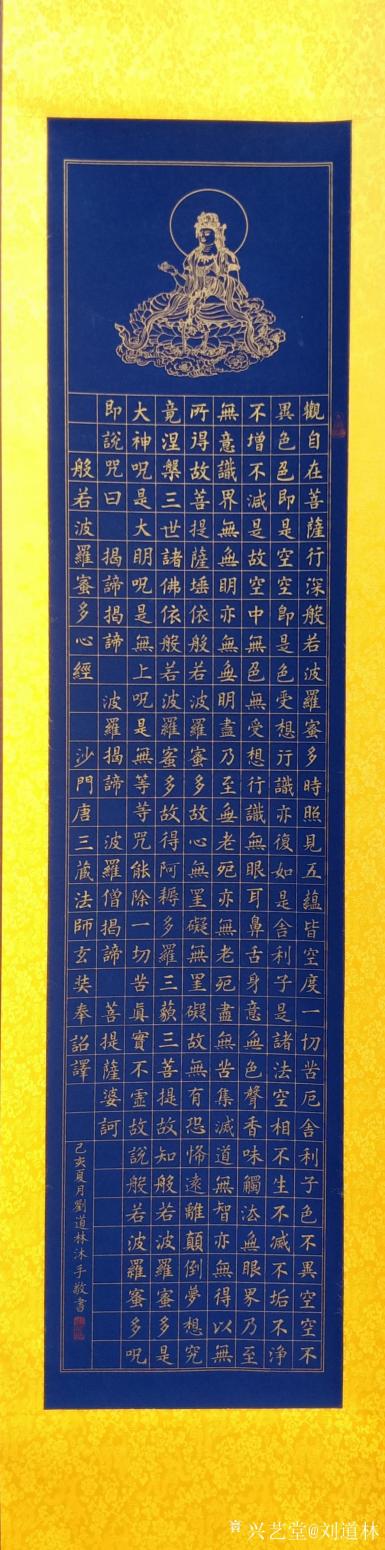 觀自在菩薩行深般若波羅蜜多時照見五蘊皆空度一切苦厄舍利子色不異空空不
異色色即是空空即是色受想行識亦復如是舍利子是諸法空相不生不滅不垢不淨
不增不減是故空中無色無受想行識無眼耳鼻舌身意無色聲香味觸法無眼界乃至
無意識界無無明亦無無明盡乃至無老死亦無老死盡無苦集滅道無智亦無得以無
所得故菩提薩埵依般若波羅蜜多故心無罣礙無罣礙故無有恐怖遠離顛倒夢想究
竟涅槃三世諸佛依般若波羅蜜多故得阿耨多羅三藐三菩提故知般若波羅蜜多是
大神呪是大明呪是無上呪是無等等咒能除一切苦真實不虛故說般若波羅蜜多呪
即說咒曰 揭諦揭諦 波羅揭諦 波羅僧揭諦 菩提薩婆訶
般若波羅蜜多心經 沙門唐三藏法師玄奘奉詔譯
己亥夏月劉道林沐手敬書
兴艺堂@刘道林